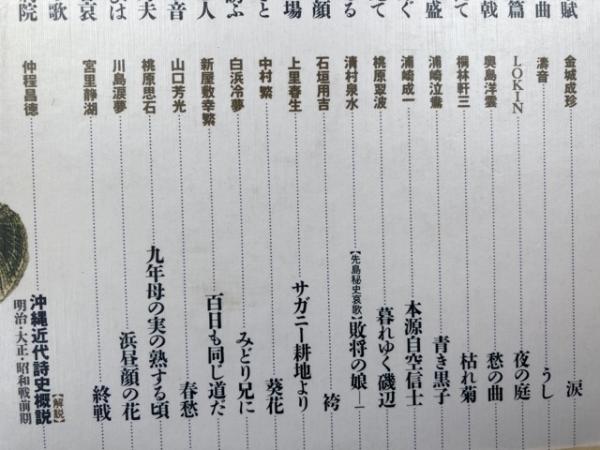 賦 金城成珍 涙
曲 濤音 うし
篇 LOKIN 夜の庭
戟 奥島洋雲 愁の曲
て 桐林軒三 枯れ菊
盛 浦崎泣鴦 青き黒子
ぐ 浦崎成一 本源自空信士
て 桃原翠波 暮れゆく磯辺
る 清村泉水 【先島秘史哀歌】敗将の娘―1
顔 石垣用吉 袴
場 上里春生 サガニー耕地より
と 中村繁 葵花
ふ 白浜冷夢 みどり兄に
人 新屋敷幸繁 百日も同じ道だ
音 山口芳光 春愁
夫 桃原思石 九年母の実の熟する頃
は 川島涙夢 浜昼顔の花
哀 宮里静湖 終戦
歌
院 仲程昌徳 沖縄近代詩史概説【解説】
明治・大正・昭和戦前期